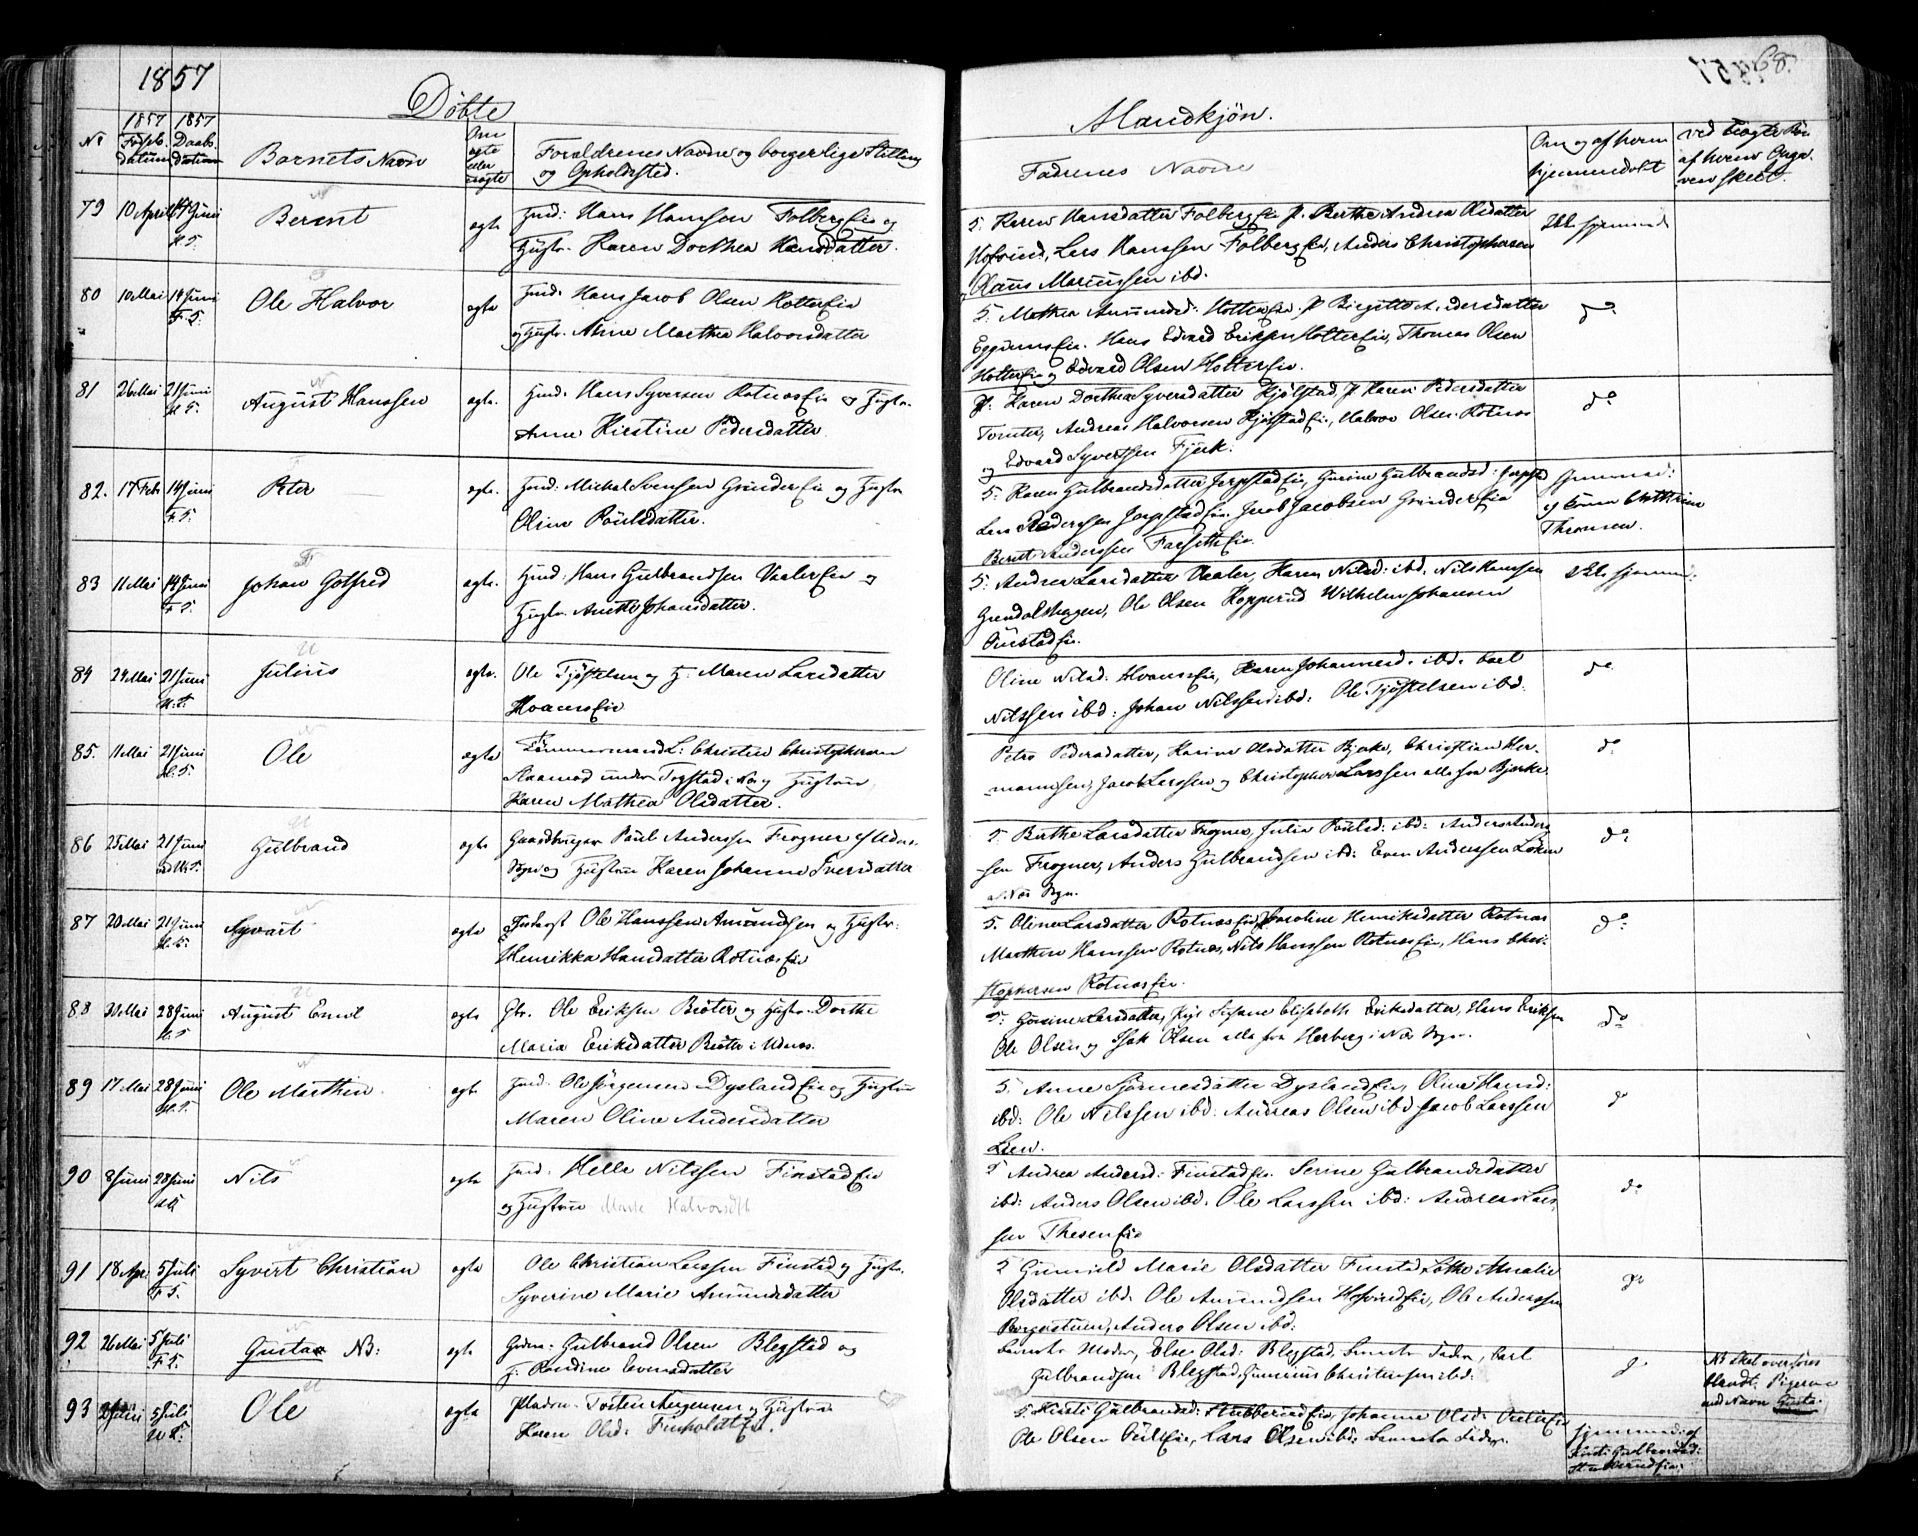 1857
Døbte
Mandkjøn.
68.
No
1857 Fødsels datum
1857 Daabs datum
Barnets Navn
Om ægte eller uægte
Forældrenes Navne og borgerlige Stilling
og Opholdsted.
Faddernes Navne
Om og af hvem
hjemmedøbt
79 10 April 14 Juni
Bernt
ægte
Hmd: Hans Hansen Folberg Eie og
Hustr. Karen Dorthea Hansdatter.
5. Karen Hansdatter Folberg Eie P. Berthe Andrea Olsdatter
Hofvind, Lars Hanssen Folberg Eie, Anders Christophersen
Claus Mariussen ibd.
Ikke hjemmed
80 10 Mai 14 Juni F. T.
Ole Halvor
ægte
Hmd: Hans Jacob Olsen Holter Eie
og Hustr. Anne Marthea Halvorsdatter
5. Mathea Amundsd: Holter Eie P Birgitte
Eggums Eie. Hans Edvard Eriksen Holter Eie, Thomas Olsen
Holter Eie og Edvard Olsen Holter Eie.
do
81 26 Mai 21 Juni H. T.
August Hanssen
ægte.
Hmd: Hans Syversen Rotnæs Eie og Hustr.
Anne Kirstine Pedersdatter
P: Karen Dorthea Syversdatter Kjølstad, P Karen Pedersdatter
Tomter, Andreas Halvorsen Kjølstad Eie, Halvor Olsen Rotnæs
og Edvard Syvertsen Fjerk.
do
82. 17 Feb 14 Juni F. T.
Peter
ægte.
Hmd: Mickel Svensen Grinder Eie og Hustr
Oline Poulsdatter.
5. Karen Gulbrandsdatter Jerpstad Eie, Gurine Gulbrandsd: Jerpstd
Lars Pedersen Jerpstad Eie. Jacob Jacobsen Grinder Eie
Bernt Andersen Farseth Eie.
Hjemmed:
af Emm Cathrine
Thomsen.
83 11 Mai 14 Juni F. T.
Johan Gotfred
ægte.
Hmd: Hans Gulbrandsen Vaaler Eie og
Hustr. Anette Johansdatter.
5. Andrea Larsdatter Vaaler, Karen Nilsd: ibd. Nils Hanssen
Grendalshagen, Ole Olsen Kopperud Wilhelm Johansen
Finstad Eie.
Ikke hjemmed.
84 24 Mai 21 Juni H. T.
Julius
ægte.
Ole Tjøstelsen og H: Maren Larsdatter
Hvams Eie
Oline Nilsd: Hvams Eie, Karen Johannesd. ibd. Carl
Nilssen ibd: Johan Nilssen ibd: Ole Tjøstelsen ibd.
do
85. 11 Mai 21 Juni H. T.
Ole
ægte
Tømmermand L: Christen Christophersen
under Togstad i Næs og Hustrue,
Karen Mathea Olsdatter.
Petra Pedersdatter, Karine Olsdatter Bjerke, Christian Her-
mannsen, Jacob Larssen og Christopher Larssen alle fra Bjerke.
do
86 25 Mai 21 Juni
Gulbrand
ægte
Gaardbruger Paul Anderssen Frogner af Udnæs
Sogn og Hustrue Karen Johanne Iversdatter
5. Berthe Larsdatter Frogner, Julia Poulsd: ibd: Anders Ander-
sen Frogner, Anders Gulbrandsen ibd: Even Anderssen Løken
i Næs Sogn.
do
87 20 Mai 21 Juni H. T.
Syvart
ægte
Inderst Ole Hanssen Amundsen og Hustr:
Henrikka Hansdatter Rotnæs Eie
5. Oline Larsdatter Rotnæs Eie, P Karoline Henriksdatter Rotnæs
Marthin Hanssen Rotnæs, Nils Hanssen Rotnæs Eie, Hans Chri-
stophersen Rotnæs Eie.
do
88 20 Mai 28 Juni H. T.
August Emil
ægte
Gbr. Ole Eriksen Brøter og Hustr. Dorthe
Maria Eriksdatter Brøter i Udnæs.
5: Gurine Larsdatter, Pige Susane Elisabeth Eriksdatter, Hans Eriksen
Ole Olsen og Isak Olsen alle fra Herberg i Næs Sogn.
do
89 17 Mai 28 Juni H. T.
Ole Marthin
ægte
Hmd. Ole Jørgensen Dysland Eie og Hustrue
Maren Oline Andersdatter
5 Anne Hannesdatter Dysland Eie, Oline Hansd:
ibd: Ole Nilssen ibd: Andreas Olsen ibd Jacob Larssen
Lien.
do
90 8 Juni 28 Juni
Nils
ægte
Hmd. Helle Nilssen Finstad Eie
og Hustrue Marte Halvorsdtr
5 Andrea Andersd: Finstad Eie. Serine Gulbrandsdatter
ibd: Anders Olsen ibd. Ole Larssen ibd: Andreas Lar-
sen Thesen Eie
do
91 18 Apr 5 Juli F. T.
Syvert Christian
ægte
Ole Christian Larssen Finstad og Hustr.
Syverine Marie Amundsdatter
5 Gunnild Marie Olsdatter Finstad Lothe Amalie
Olsdatter ibd. Ole Amundsen Hofvind Eie, Ole Anderssen
Borgerstuen, Anders Olsen ibd:
do
92 26 Mai 5 Juli F. T.
Gustav NB:
ægte
Gbrm: Gulbrand Olsen Blegstad og
H. Randine Evensdatter
Barnets Moder, Else Olsd: Blegstad Barnets Fader, Carl
Gulbrandsen Blegstad, Gunerius Christensen ibd:
d
NB skal overføres
blandt Pigerne
med Navn Gusta.
93 5 Juli
Ole
ægte
Pladsm. Torsten Aslaksen og Hustrue
Karen Olsd: Finholdt Eie.
5. Kirsti Gulbrandsd: Stubberud Eie, Johanne Olsd:
Ole Olsen, Lars Olsen ibd: Barnets Fader.
Hjemmed: af
Kirsti Gulbrandsd:
Stubberud Eie: